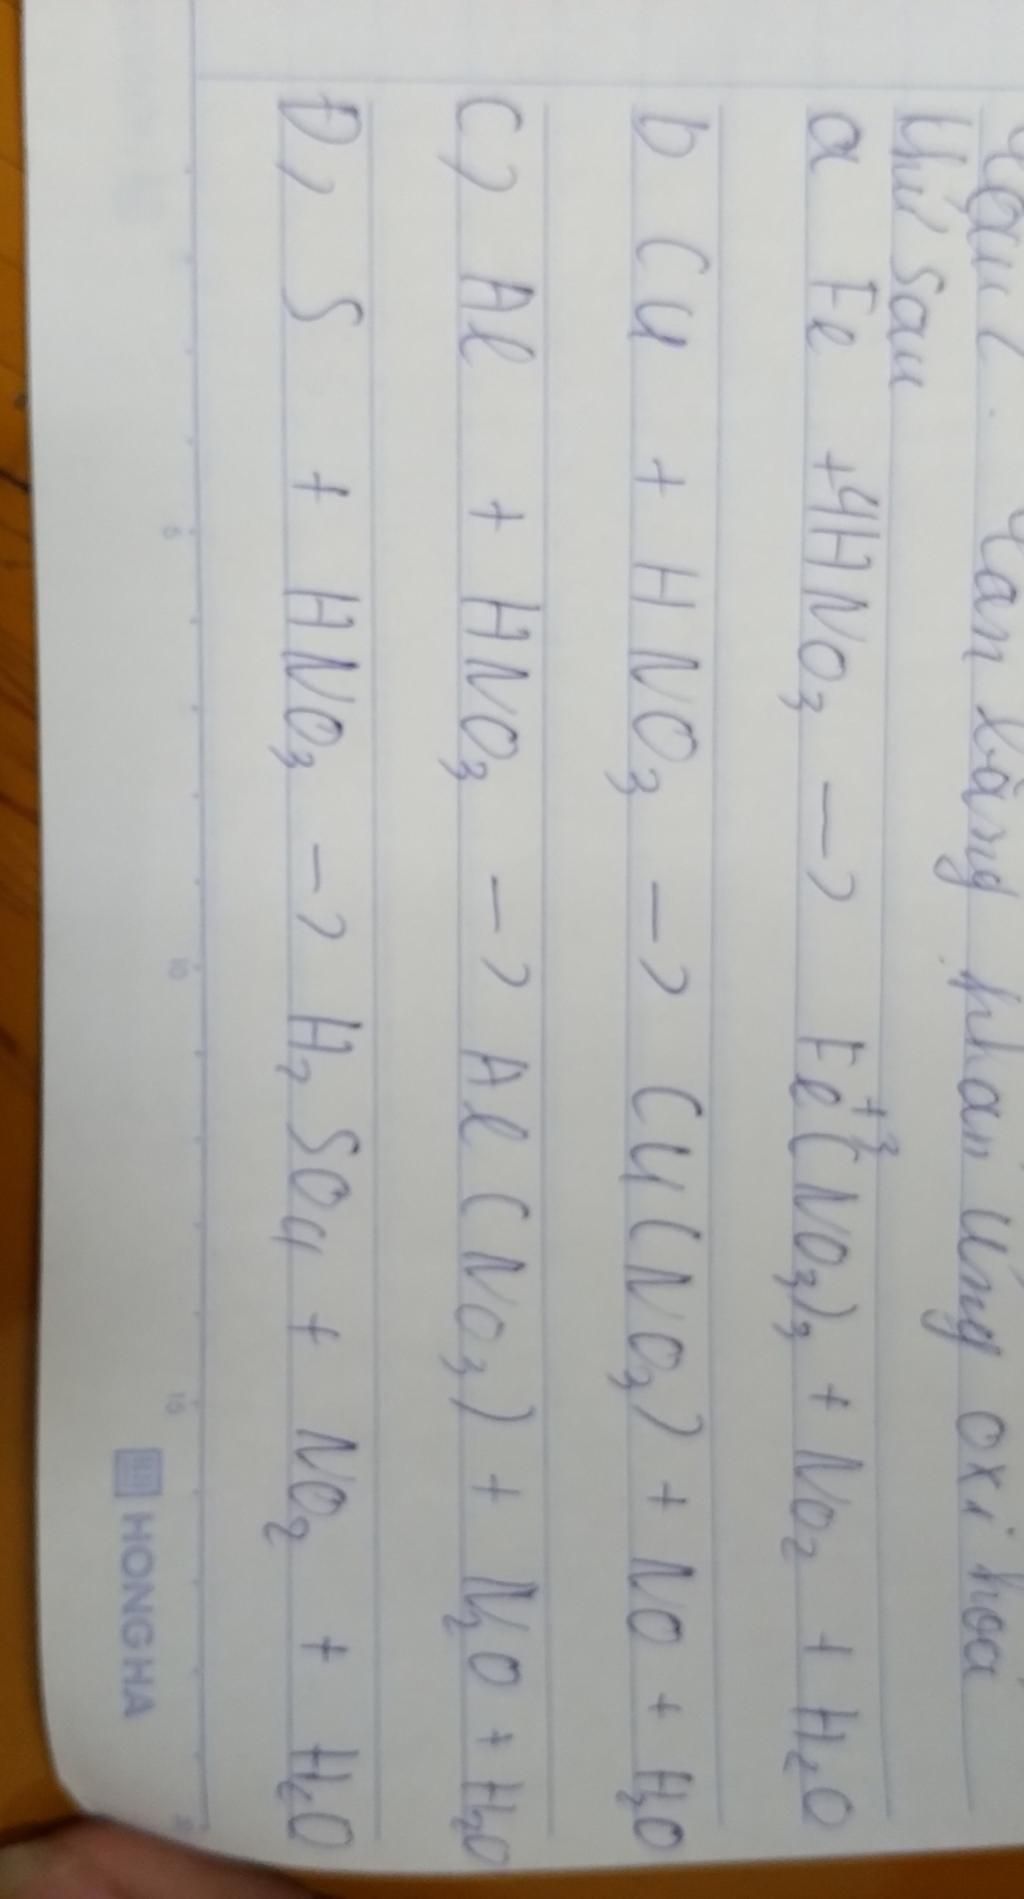 Câu 1. Cân bằng phản ứng oxi hoá
khử sau
a Fe + 4HNO3 -> Fe+3(NO3)3 + NO2 + H2O
b Cu + HNO3 -> Cu(NO3) + NO + H2O
C) Al + HNO3 -> Al(NO3) + N2O + H2O
D) S + HNO3 -> H2SO4 + NO2 + H2O
5 10 15
HONG HA